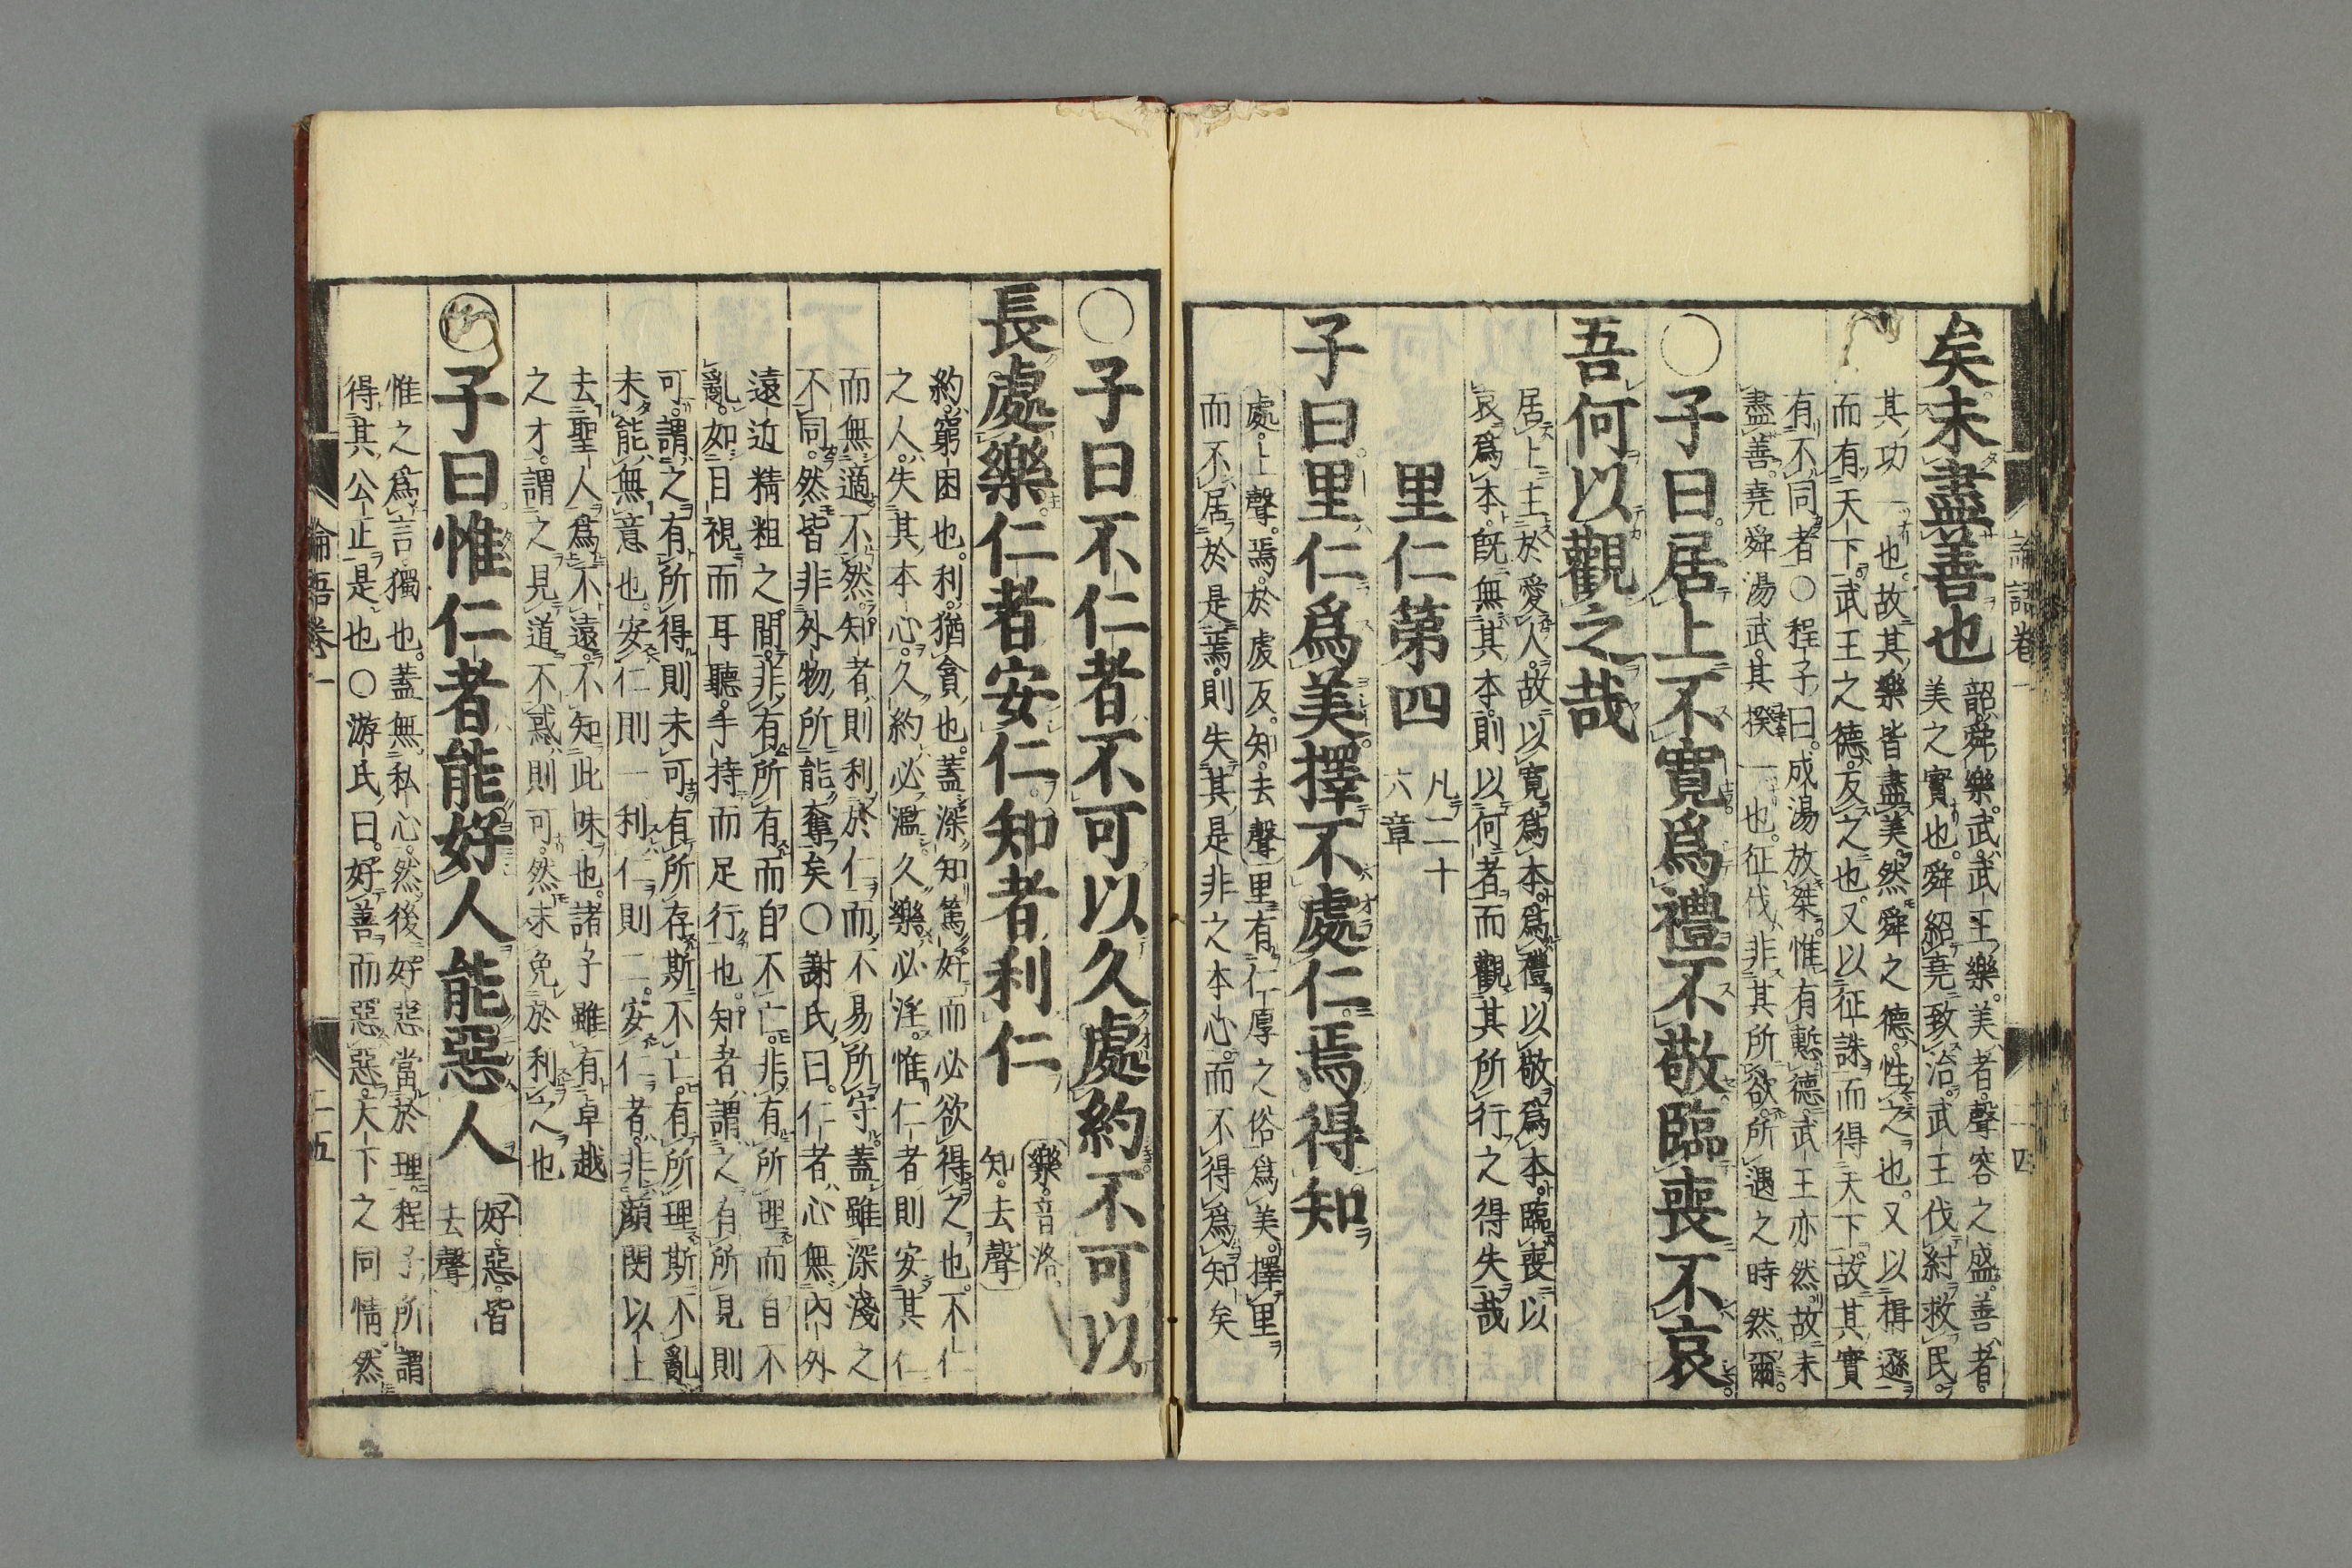 論語卷一
四
矣未盡善也
韶舜樂武武王樂美者聲容之盛善者
美之實也舜紹堯致治武王伐紂救民
其功一也故其樂皆盡美然舜之德性之也又以揖遜
而有天下武王之德反之也又以征誅而得天下故其實
有不同者○程子曰成湯放桀惟有慙德武王亦然故未
盡善堯舜湯武其揆一也征伐非其所欲所遇之時然爾
○子曰居上不寬爲禮不敬臨喪不哀
吾何以觀之哉
居上主於愛人故以寬爲本爲禮以敬爲本臨喪以
哀爲本旣無其本則以何者而觀其所行之得失哉
里仁第四
凡二十
六章
子曰里仁爲美擇不處仁焉得知
處上聲焉於虔反知去聲里有仁厚之俗爲美擇里
而不居於是焉則失其是非之本心而不得爲知矣
○子曰不仁者不可以久處約不可以
長處樂仁者安仁知者利仁
樂音洛
知去聲
約窮困也利猶貪也蓋深知篤好而必欲得之也不仁
之人失其本心久約必濫久樂必淫惟仁者則安其仁
而無適不然知者則利於仁而不易所守蓋雖深淺之
不同然皆非外物所能奪矣○謝氏曰仁者心無內外
遠近精粗之間非有所存而自不亡非有所理而自不
亂如目視而耳聽手持而足行也知者謂之有所見則
可謂之有所得則未可有所存斯不亡有所理斯不亂
未能無意也安仁則一利仁則二安仁者非顏閔以上
去聖人爲不遠不知此味也諸子雖有卓越
之才謂之見道不惑則可然未免於利之也
○子曰惟仁者能好人能惡人
好惡皆
去聲
惟之爲言獨也蓋無私心然後好惡當於理程子所謂
得其公正是也○游氏曰好善而惡惡天下之同情然
論語卷一
二五